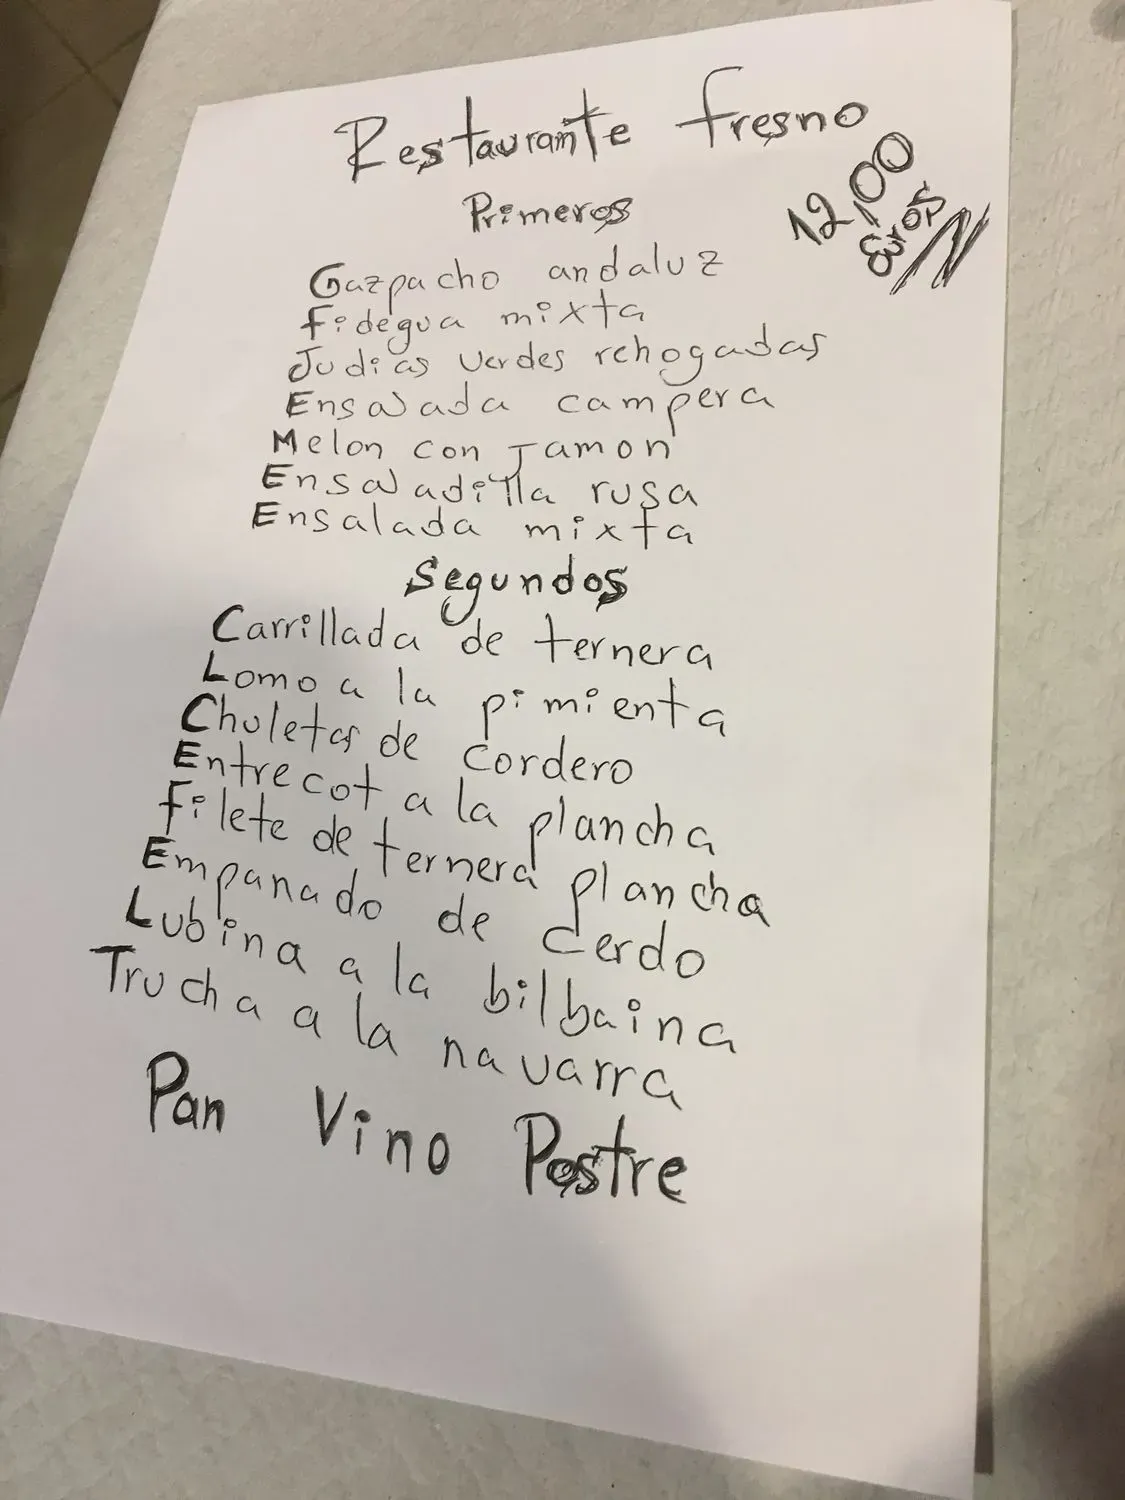 Restaurante fresno
12,00
euros
Primeros
Gazpacho andaluz
fidegua mixta
Judias verdes rehogadas
Ensalada campera
Melon con Jamon
Ensaladilla rusa
Ensalada mixta
Segundos
Carrillada de ternera
Lomo a la pimienta
Chuletas de cordero
Entrecot a la plancha
filete de ternera plancha
Empanado de cerdo
Lubina a la bilbaina
Trucha a la navarra
Pan Vino Postre